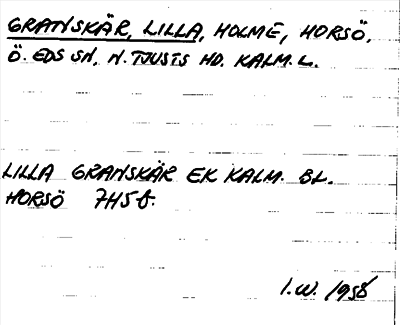 GRANSKÄR, LILLA, HOLME, HORSÖ,
Ö. EDS SN, N. TJUSTS HD. KALM. L.
LILLA GRANSKÄR EK KALM. BL.
HORSÖ 7H5b.
I.W. 1958